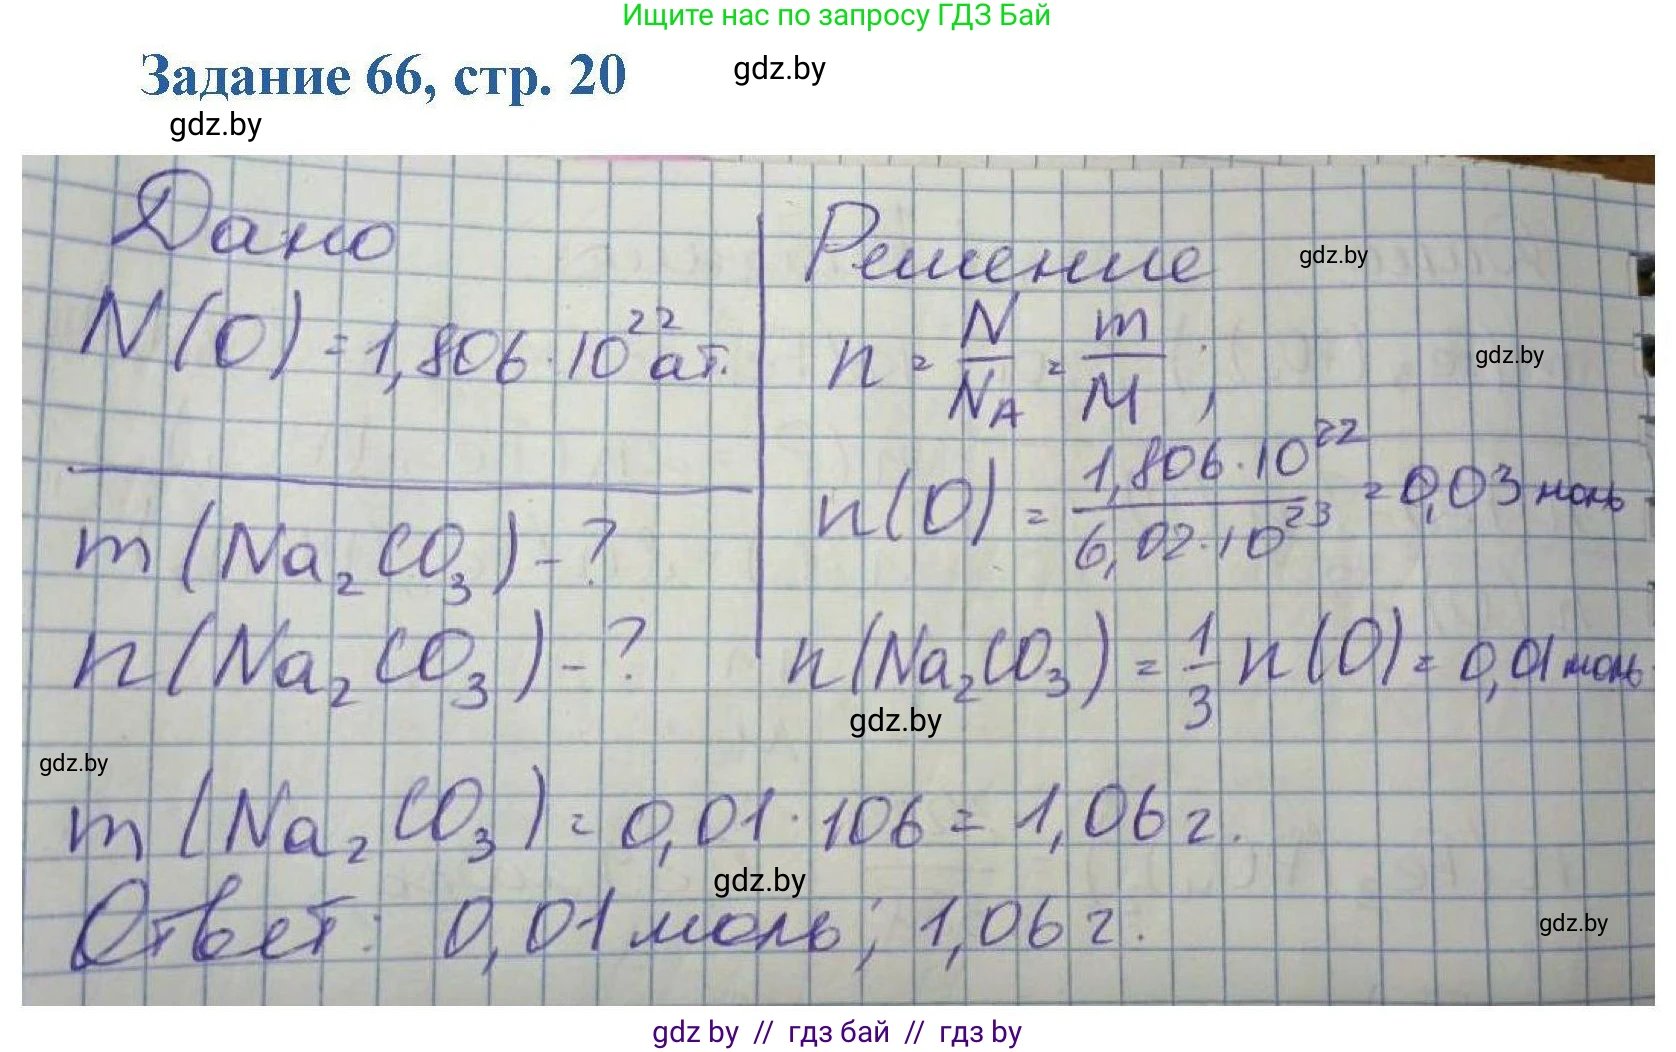 Ищите нас по запросу ГДЗ Бай
Задание 66, стр. 20
gdz.by
gdz.by
Дано
N(O) = 1,806·10²² ат.
m(Na₂CO₃) - ?
n(Na₂CO₃) - ?
Решение
gdz.by
n = N/N_A = m/M ;
gdz.by
n(O) = 1,806·10²²/6,02·10²³ = 0,03 моль
n(Na₂CO₃) = 1/3 n(O) = 0,01 моль
gdz.by
gdz.by
m(Na₂CO₃) = 0,01 · 106 = 1,06 г.
gdz.by
Ответ: 0,01 моль; 1,06 г.
gdz.by
gdz by // гдз бай // гдз by